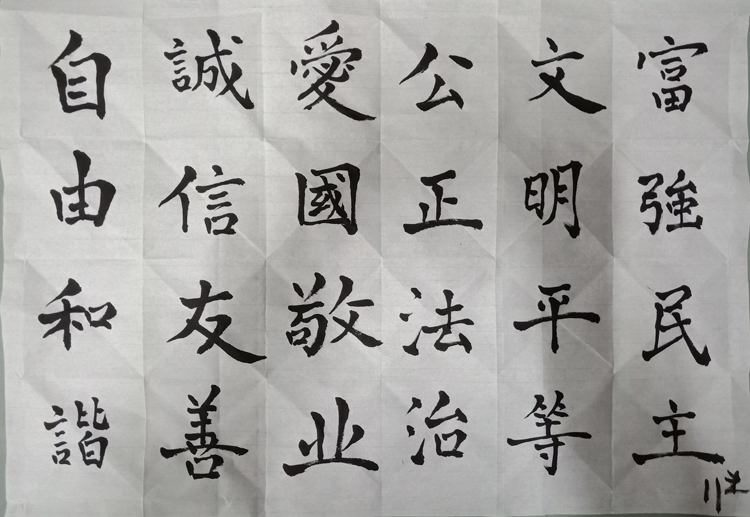 富強民主
文明平等
公正法治
愛國敬业
誠信友善
自由和諧